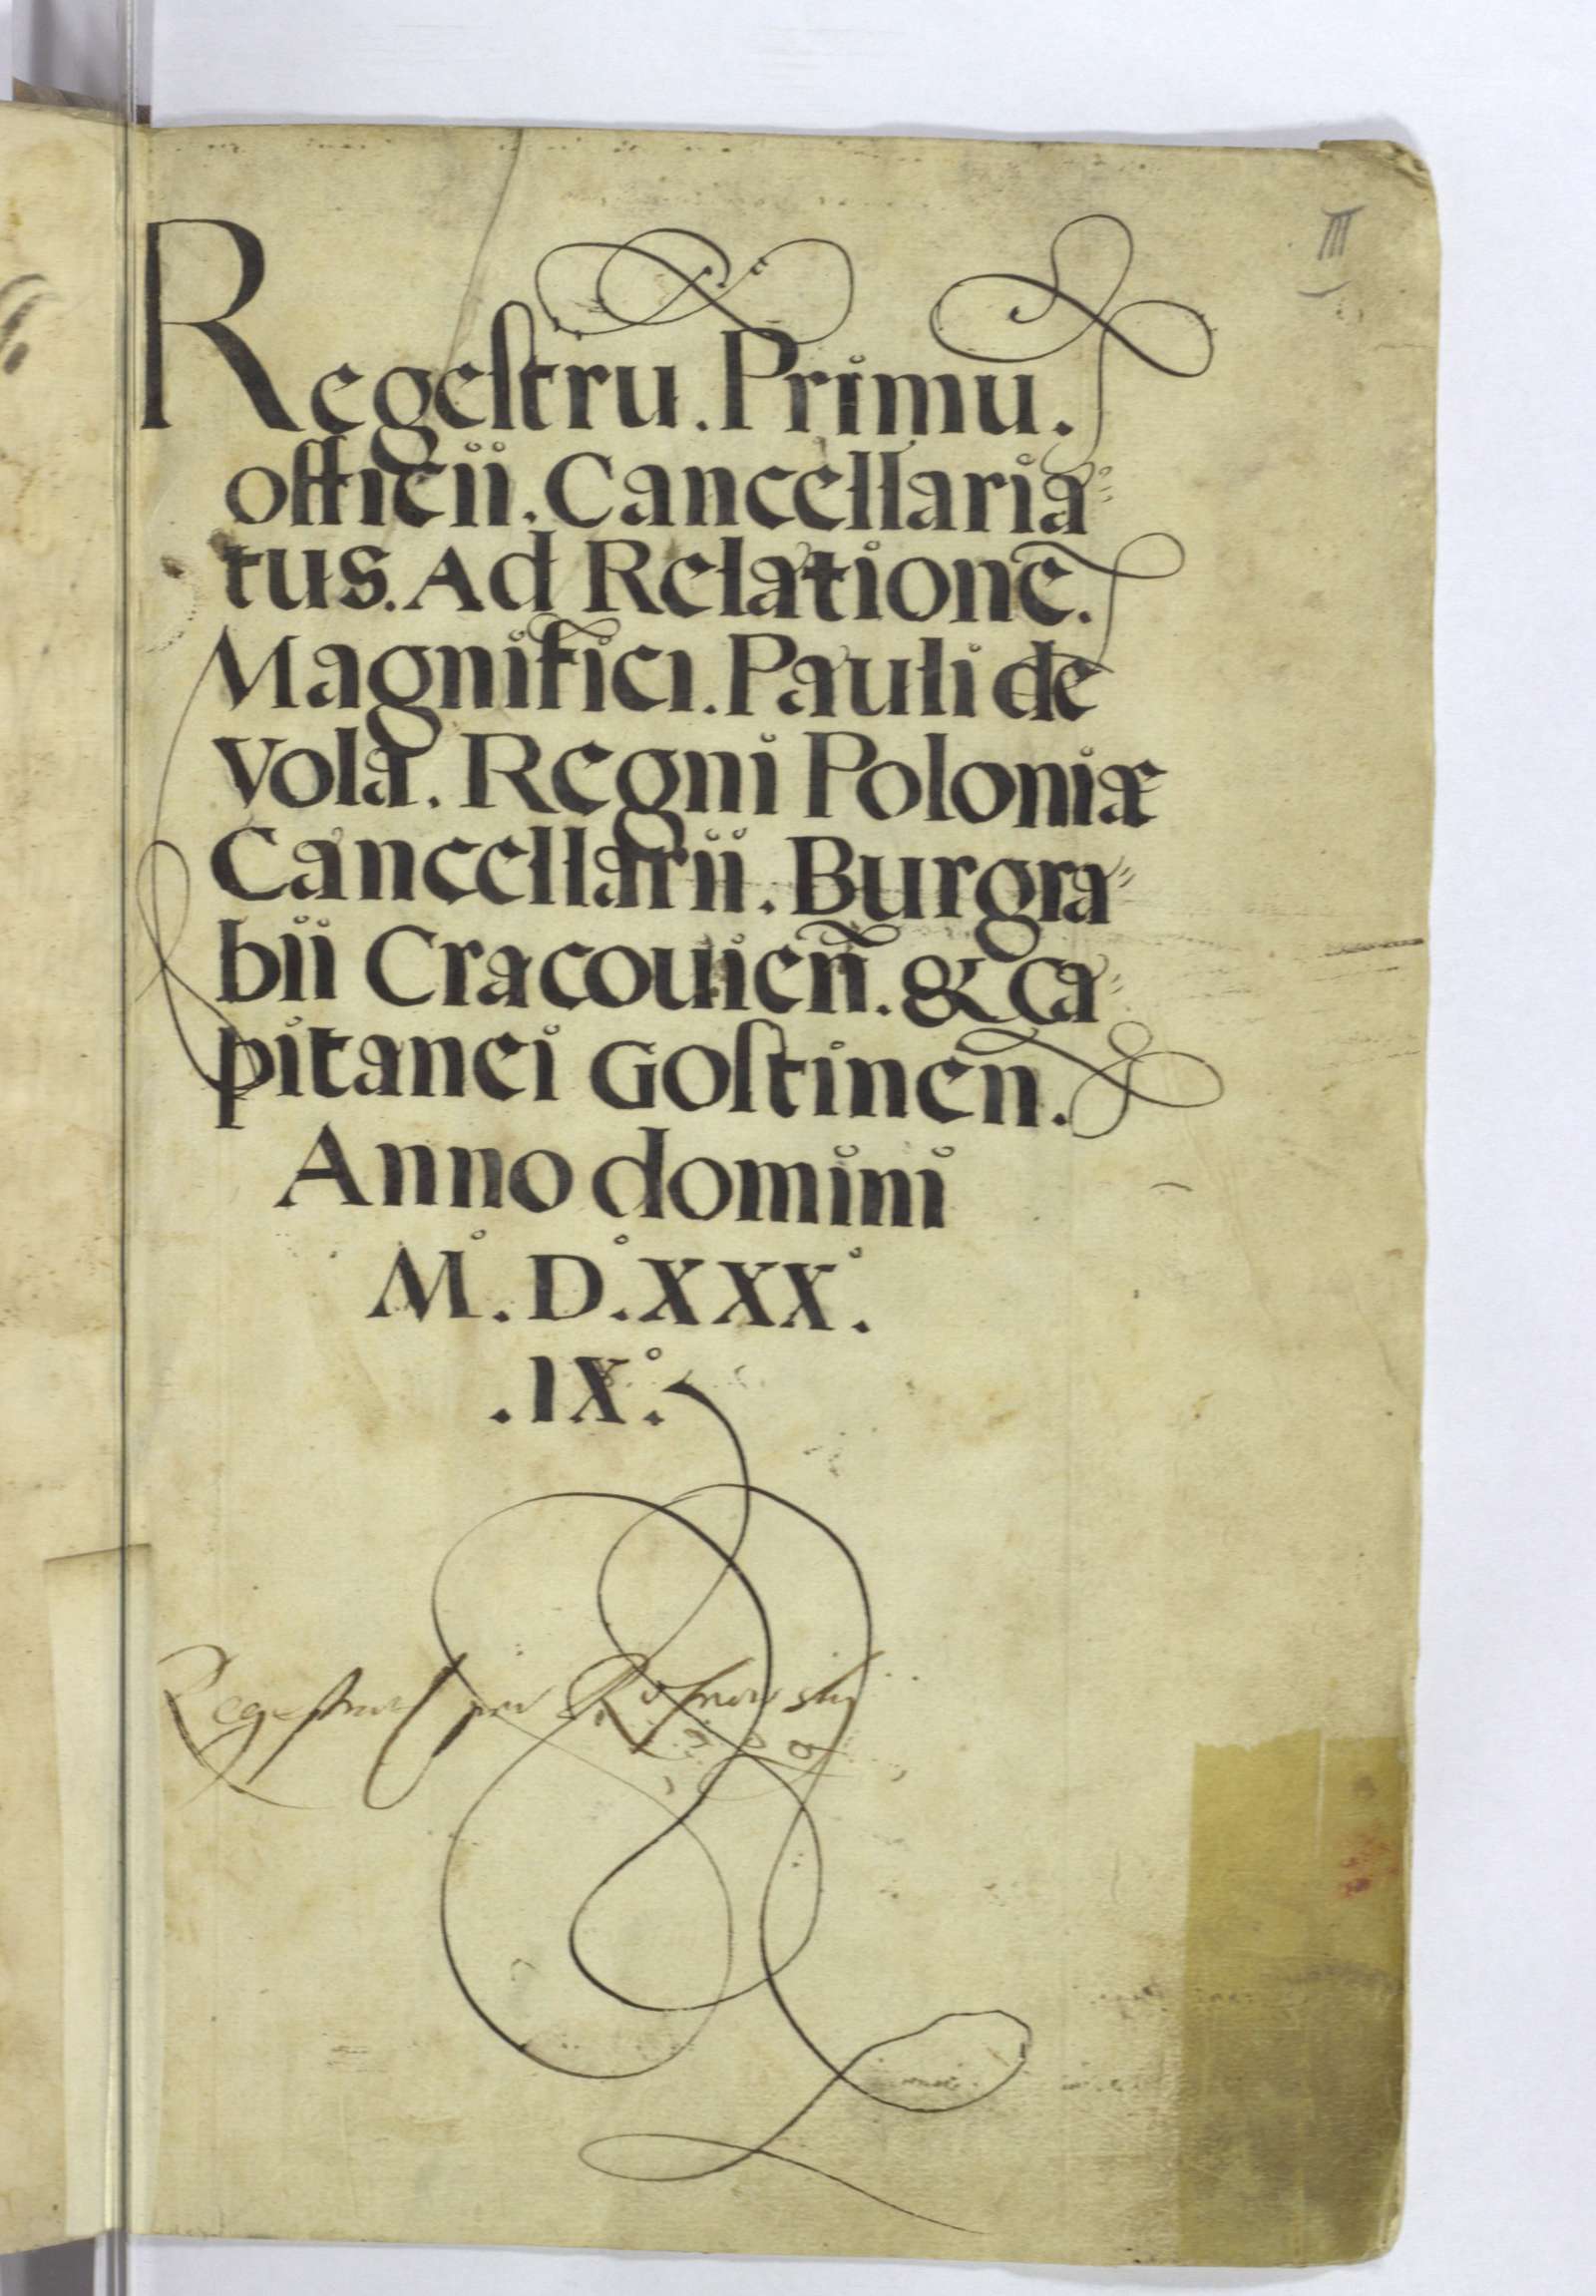 III
Regestru. Primu.
officii. Cancellaria=
tus. Ad Relationē.
Magnifici. Pauli de
Vola. Regni Poloniæ
Cancellarii. Burgra=
bii Cracouień. & Ca=
pitanei Gostineñ.
Anno domini
M. D. XXX.
.IX.
Regestrum